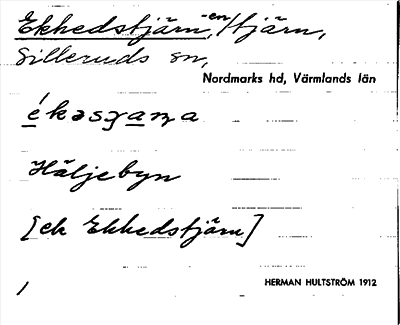 Ekhedstjärn, -en, tjärn,
Silleruds sn,
Nordmarks hd, Värmlands län
Häljebyn
[ek Ekhedstjärn]
HERMAN HULTSTRÖM 1912
1